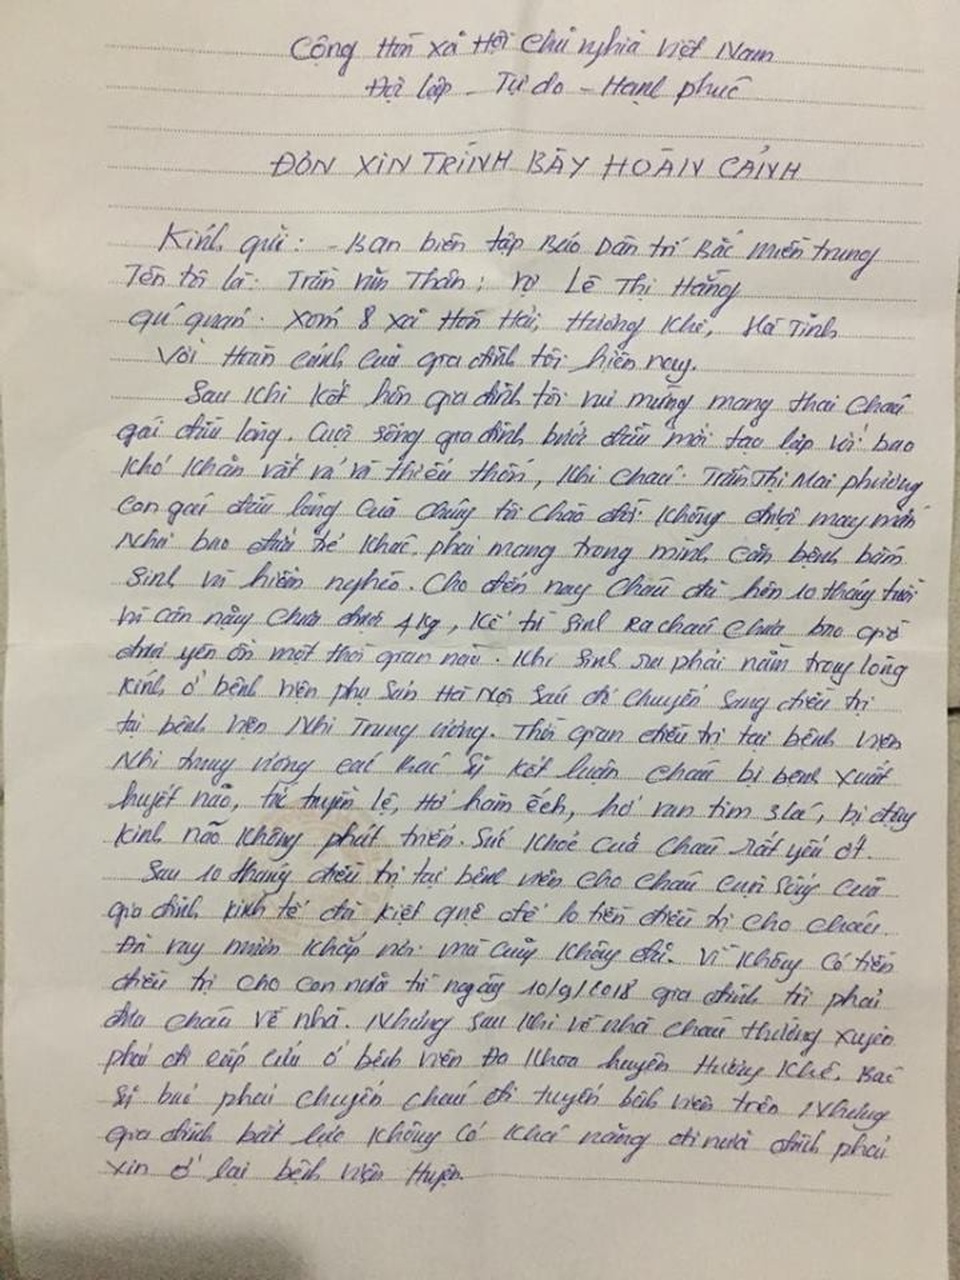 Cộng Hòa xã Hội chủ nghĩa việt Nam
Độc lập - Tự do - Hạnh phúc
ĐƠN XIN TRÌNH BÀY HOÀN CẢNH
Kính gửi: - Ban biên tập Báo Dân trí Bắc miền trung
Tên tôi là: Trần văn Thân; vợ Lê Thị Hằng
quê quán. xóm 8 xã Hòa Hải, Hương Khê, Hà Tĩnh
Với Hoàn cảnh của gia đình tôi hiện nay.
Sau khi kết hôn gia đình tôi vui mừng mang thai cháu
gái đầu lòng. Cuộc sống gia đình bước đầu mới tạo lập với bao
khó khăn vất vả và thiếu thốn, khi cháu: Trần Thị Mai phương
con gái đầu lòng của chúng tôi chào đời không được may mắn
Như bao đứa trẻ khác, phải mang trong mình căn bệnh bẩm
sinh và hiểm nghèo. Cho đến nay cháu đã hơn 10 tháng tuổi
và cân nặng chưa được 4kg, kể từ sinh ra cháu chưa bao giờ
được yên ổn một thời gian nào. Khi sinh ra phải nằm trong lồng
kính ở bệnh viện phụ sản Hà Nội sau đó chuyển sang điều trị
tại bệnh viện Nhi Trung ương. Thời gian điều trị tại bệnh viện
Nhi trung ương các bác sỹ kết luận cháu bị bệnh xuất
huyết não, tắc tuyến lệ, Hở hàm ếch, hở van tim 3 lá, bị động
kinh não không phát triển. Sức khỏe của cháu rất yếu ớt.
Sau 10 tháng điều trị tại bệnh viện cho cháu cuộc sống của
gia đình kinh tế đã kiệt quệ để lo tiền điều trị cho cháu.
Đã vay mượn khắp nơi mà cũng không đủ. Vì không có tiền
điều trị cho con nữa từ ngày 10/9/2018 gia đình tôi phải
đưa cháu về nhà. Nhưng sau khi về nhà cháu thường xuyên
phải đi cấp cứu ở bệnh viện Đa khoa huyện Hương Khê. Bác
sỹ bảo phải chuyển cháu đi tuyến bệnh viện trên Nhưng
gia đình bất lực không có khả năng đi nữa đành phải
xin ở lại bệnh viện Huyện.